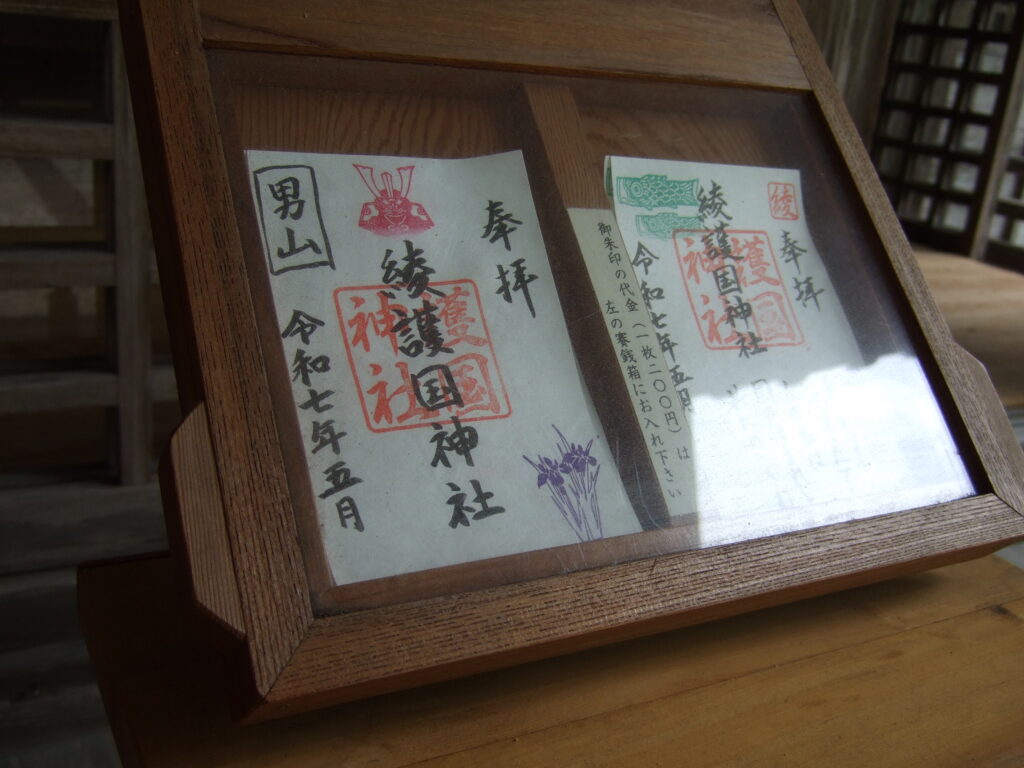 奉拝
綾護国神社
護国
神社
男山
令和七年五月
綾
奉拝
綾護国神社
護国
神社
令和七年五月
御朱印の代金(一枚二〇〇円)は
左の賽銭箱にお入れ下さい